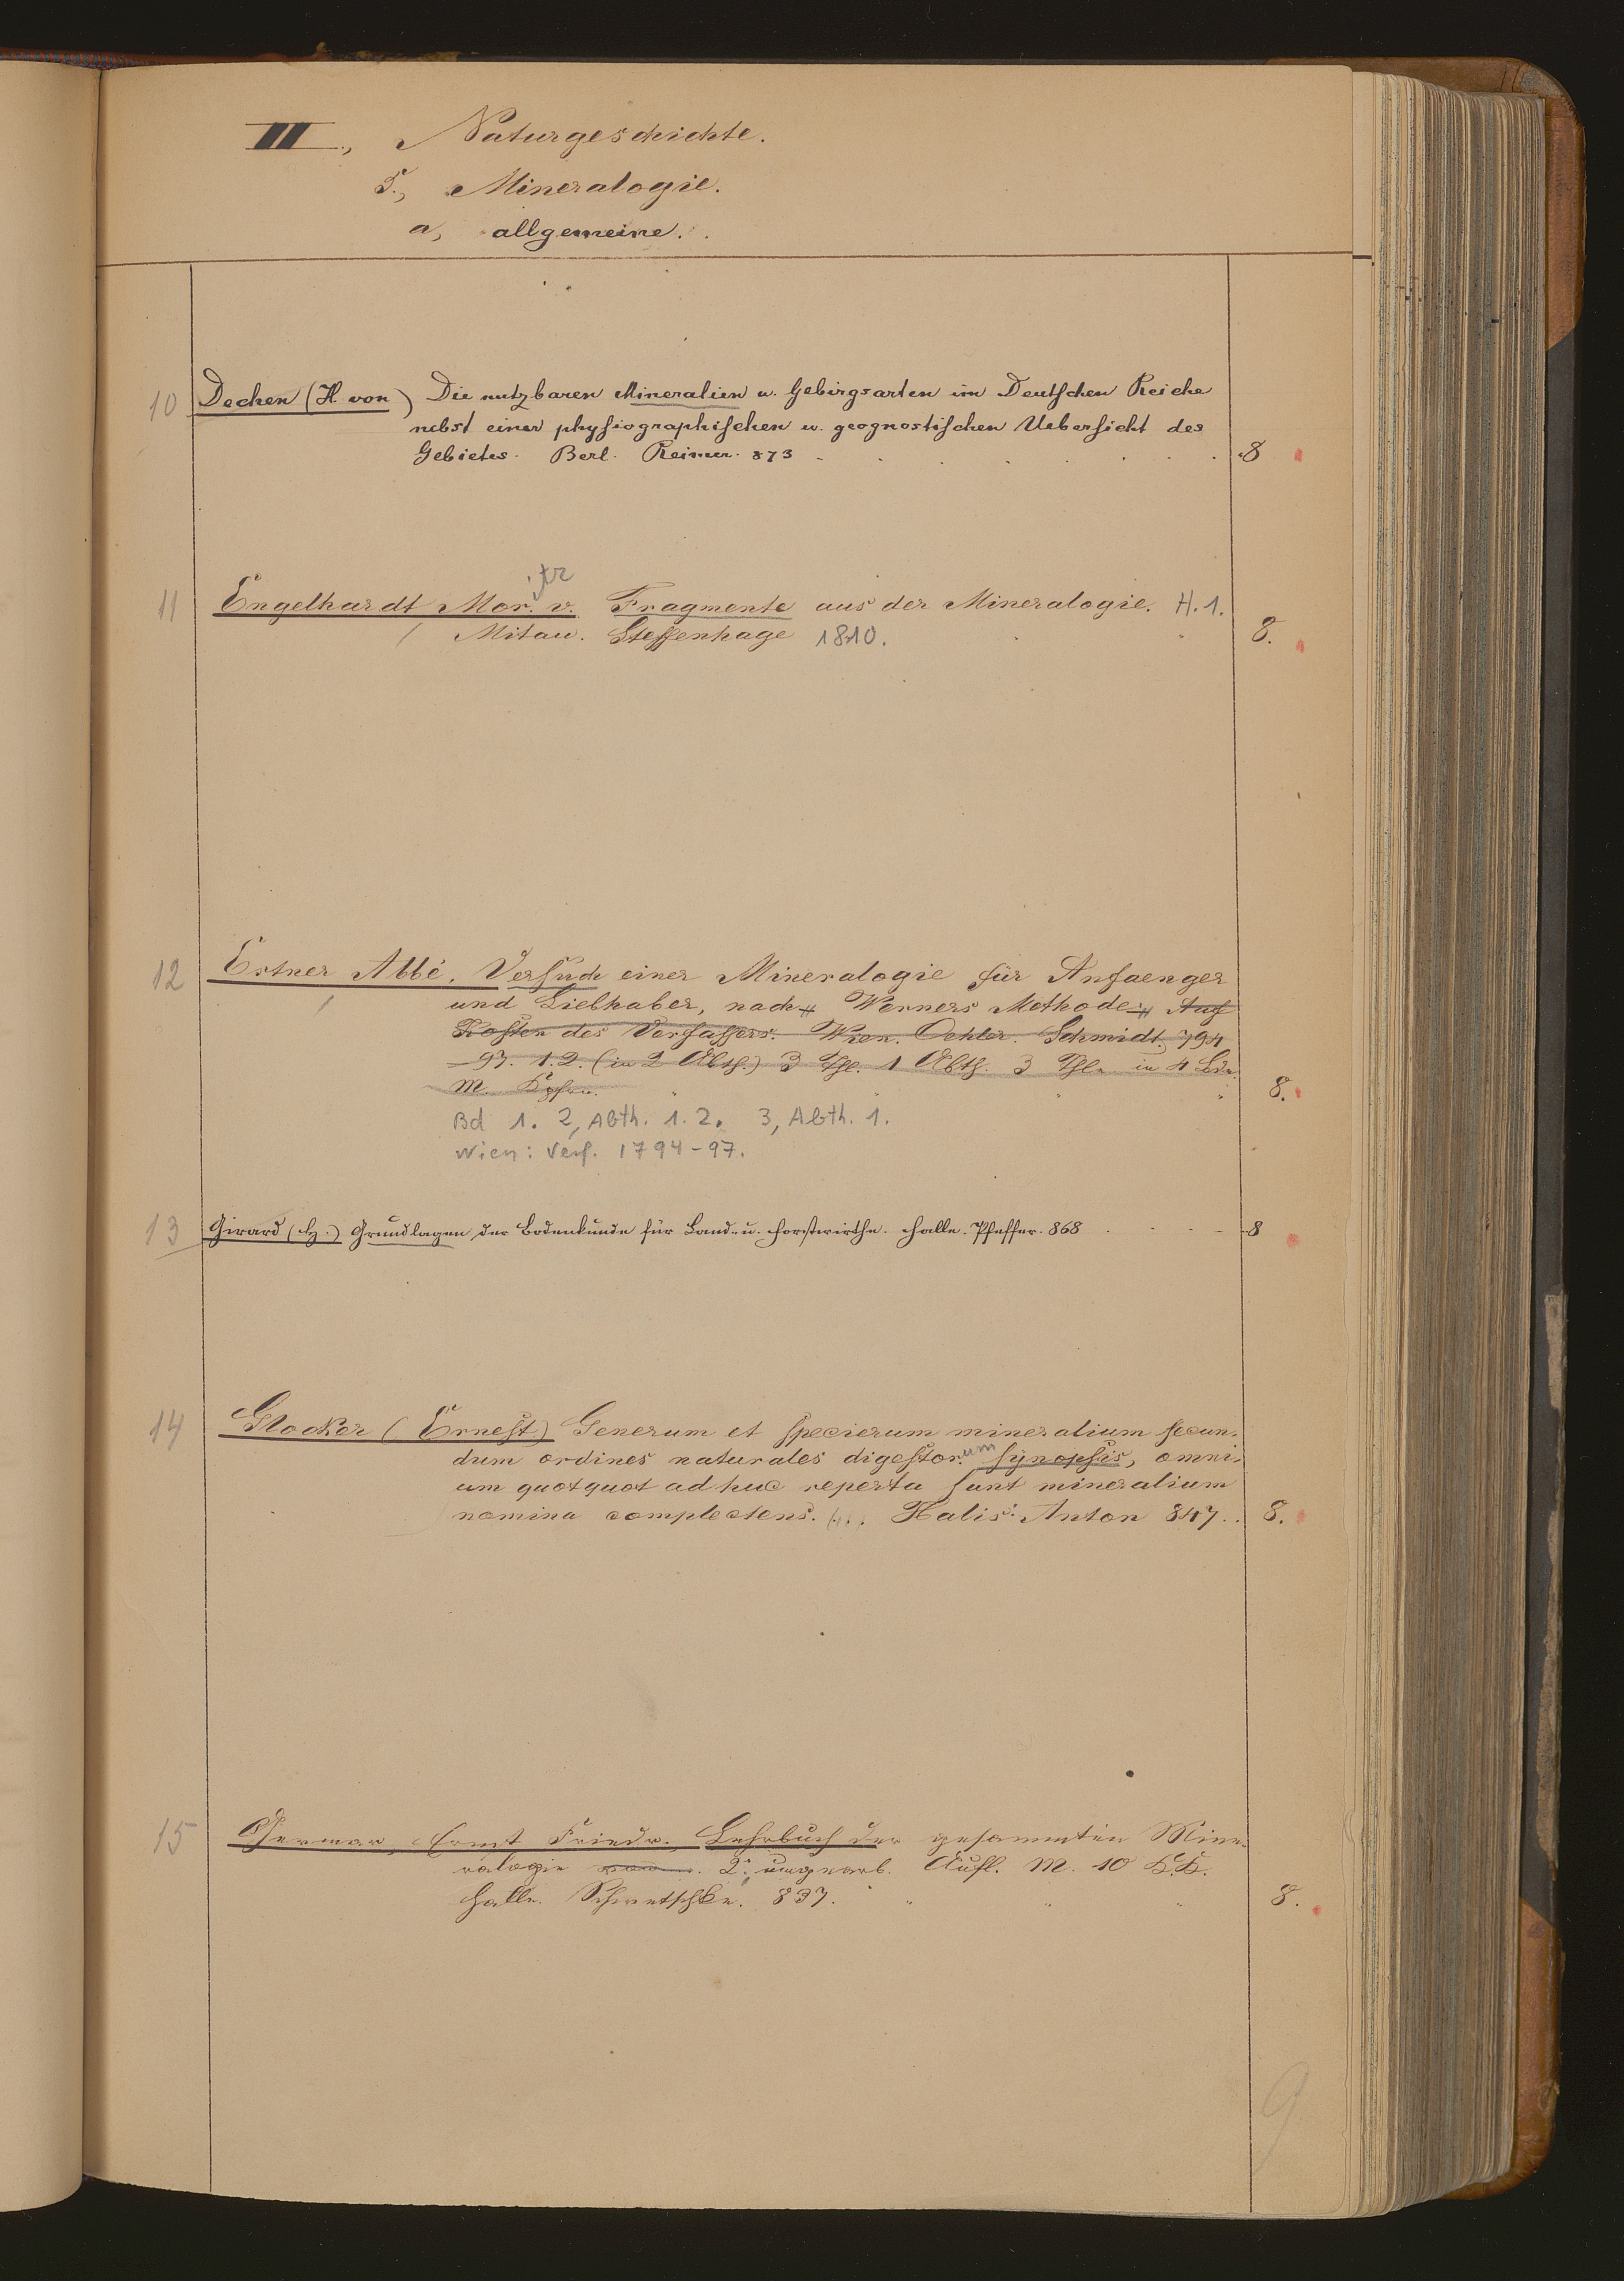 III., Naturgeschichte.
5., Mineralogie.
a, allgemeine.
10 Dechen (H. von) Die nutzbaren Mineralien u. Gebirgsarten im Deutschen Reiche
nebst einer physiographischen u. geognostischen Uebersicht des
Gebietes. Berl. Reimer. 873 8
itz
11 Engelhardt Mor. v. Fragmente aus der Mineralogie. H. 1.
Mitau. Steffenhage 1810. 8.
12 Estner Abbé. Versuch einer Mineralogie für Anfaenger
und Liebhaber, nach Werners Methode. Auf
Kosten des Verfassers. Wien. Oehler. Schmidt. 794
–97. 1.2. (in 2 Abth.) 3 Thl. 1 Abth. 3 Thle in 4 Bde.
M. Kpfrn. 8.
Bd 1. 2, Abth. 1. 2. 3, Abth. 1.
Wien: Verf. 1794-97.
13 Girard (H.) Grundlagen der Bodenkunde für Land- u. Forstwirthe. Halle. Pfeffer. 868 8
14 Glocker (Ernest) Generum et specierum mineralium secun-
dum ordines naturales digestor.um synopsis, omni-
um quotquot adhuc reperta sunt mineralium
nomina complectens. Halis: Anton 847. 8.
15 Germar, Ernst Friedr. Lehrbuch der gesammten Mine-
ralogie 2. umgearb. Aufl. M. 10 K.K.
Halle. Schwetschke. 837. 8.
9